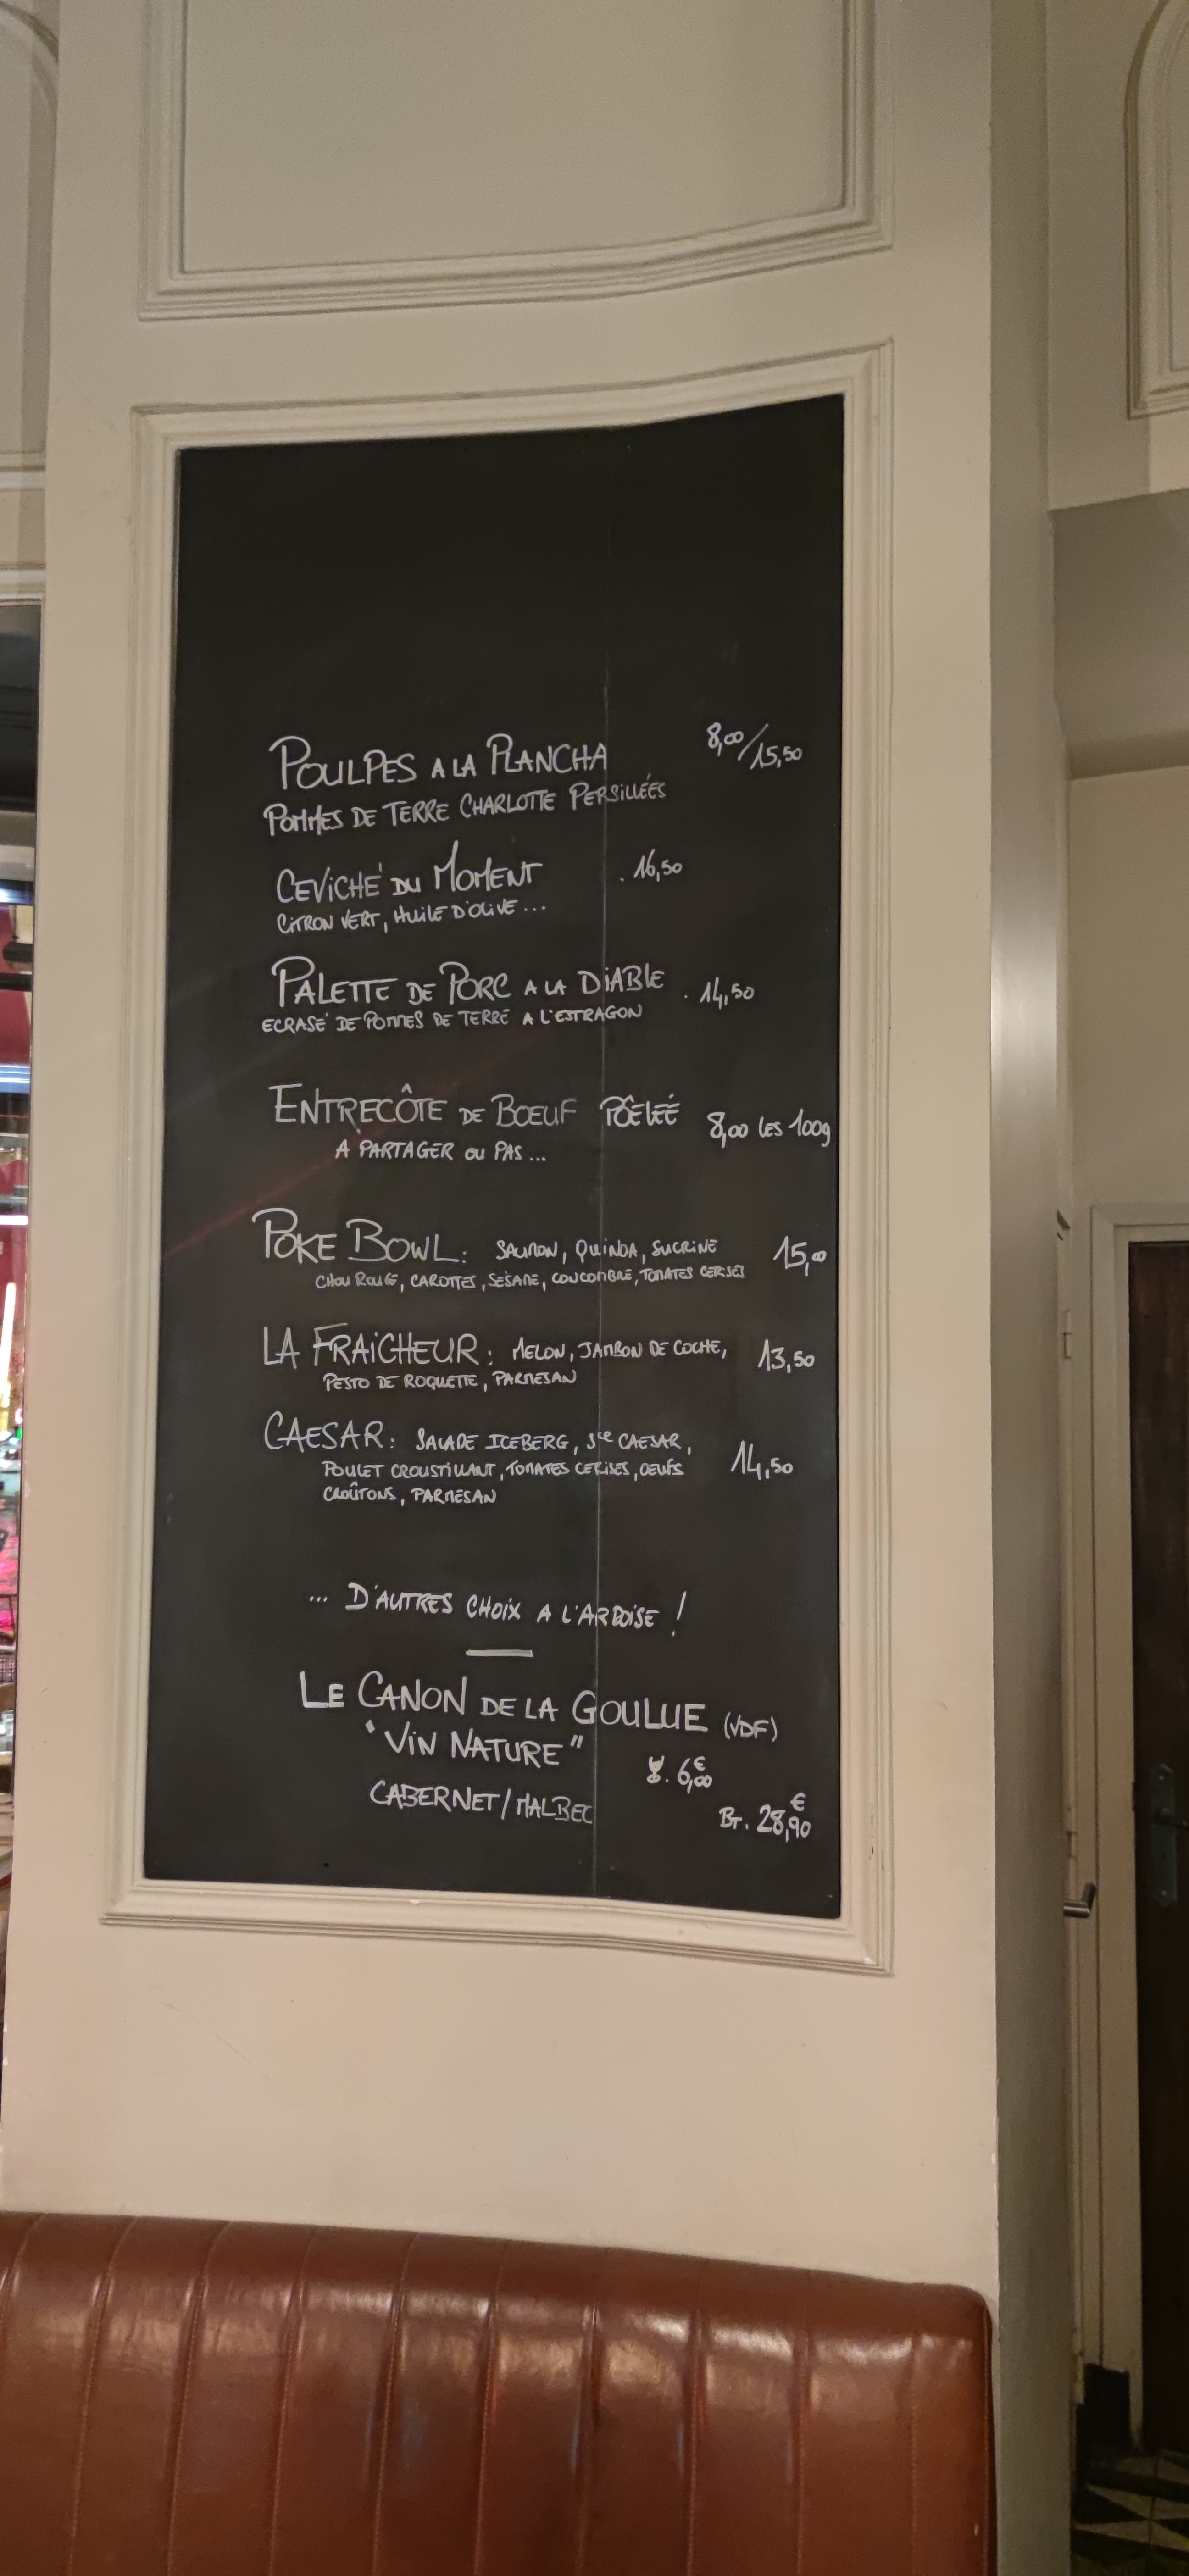 POULPES A LA PLANCHA 8,00/15,50
POMMES DE TERRE CHARLOTTE PERSILLÉES
CEVICHÉ DU MOMENT . 16,50
CITRON VERT, HUILE D'OLIVE ...
PALETTE DE PORC A LA DIABLE . 14,50
ECRASÉ DE POMMES DE TERRE A L'ESTRAGON
ENTRECÔTE DE BOEUF POÊLÉE 8,00 LES 100g
A PARTAGER OU PAS ...
POKE BOWL : SAUMON, QUINOA, SUCRINE 15,00
CHOU ROUGE, CAROTTES, SÉSAME, CONCOMBRE, TOMATES CERISES
LA FRAICHEUR : MELON, JAMBON DE COCHE, 13,50
PESTO DE ROQUETTE, PARMESAN
CAESAR : SALADE ICEBERG, Sce CAESAR, 14,50
POULET CROUSTILLANT, TOMATES CERISES, OEUFS
CROÛTONS, PARMESAN
... D'AUTRES CHOIX A L'ARDOISE !
LE CANON DE LA GOULUE (VDF)
"VIN NATURE" . 6,00€
CABERNET/MALBEC BT. 28,90€